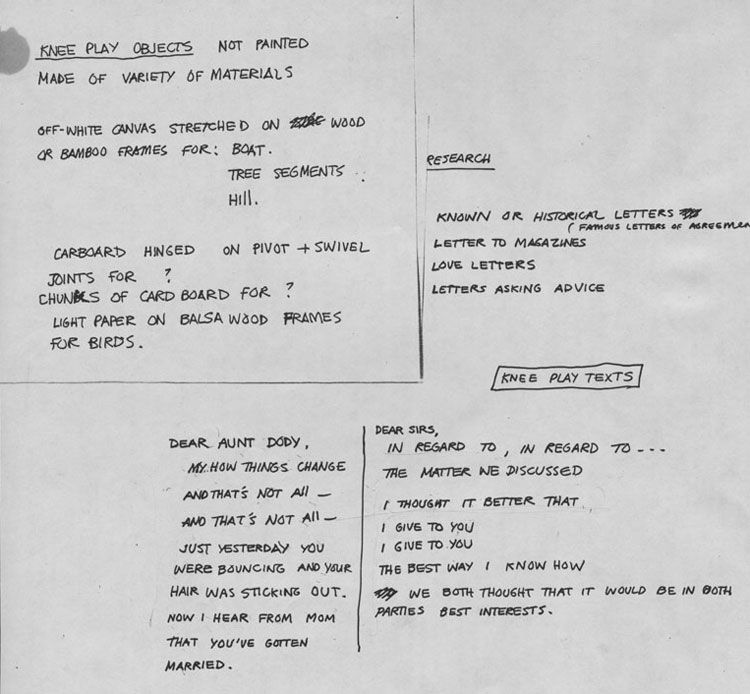 KNEE PLAY OBJECTS NOT PAINTED
MADE OF VARIETY OF MATERIALS
OFF-WHITE CANVAS STRETCHED ON WOOD
OR BAMBOO FRAMES FOR: BOAT.
TREE SEGMENTS
HILL.
CARBOARD HINGED ON PIVOT + SWIVEL
JOINTS FOR ?
CHUNKS OF CARD BOARD FOR ?
LIGHT PAPER ON BALSA WOOD FRAMES
FOR BIRDS.
RESEARCH
KNOWN OR HISTORICAL LETTERS
(FAMOUS LETTERS OF AGREEMEN
LETTER TO MAGAZINES
LOVE LETTERS
LETTERS ASKING ADVICE
KNEE PLAY TEXTS
DEAR AUNT DODY,
MY HOW THINGS CHANGE
AND THAT'S NOT All —
AND THAT'S NOT All —
JUST YESTERDAY YOU
WERE BOUNCING AND YOUR
HAIR WAS STICKING OUT.
NOW I HEAR FROM MOM
THAT YOU'VE GOTTEN
MARRIED.
DEAR SIRS,
IN REGARD TO, IN REGARD TO ---
THE MATTER WE DISCUSSED
I THOUGHT IT BETTER THAT
I GIVE TO YOU
I GIVE TO YOU
THE BEST WAY I KNOW HOW
WE BOTH THOUGHT THAT IT WOULD BE IN BOTH
PARTIES BEST INTERESTS.